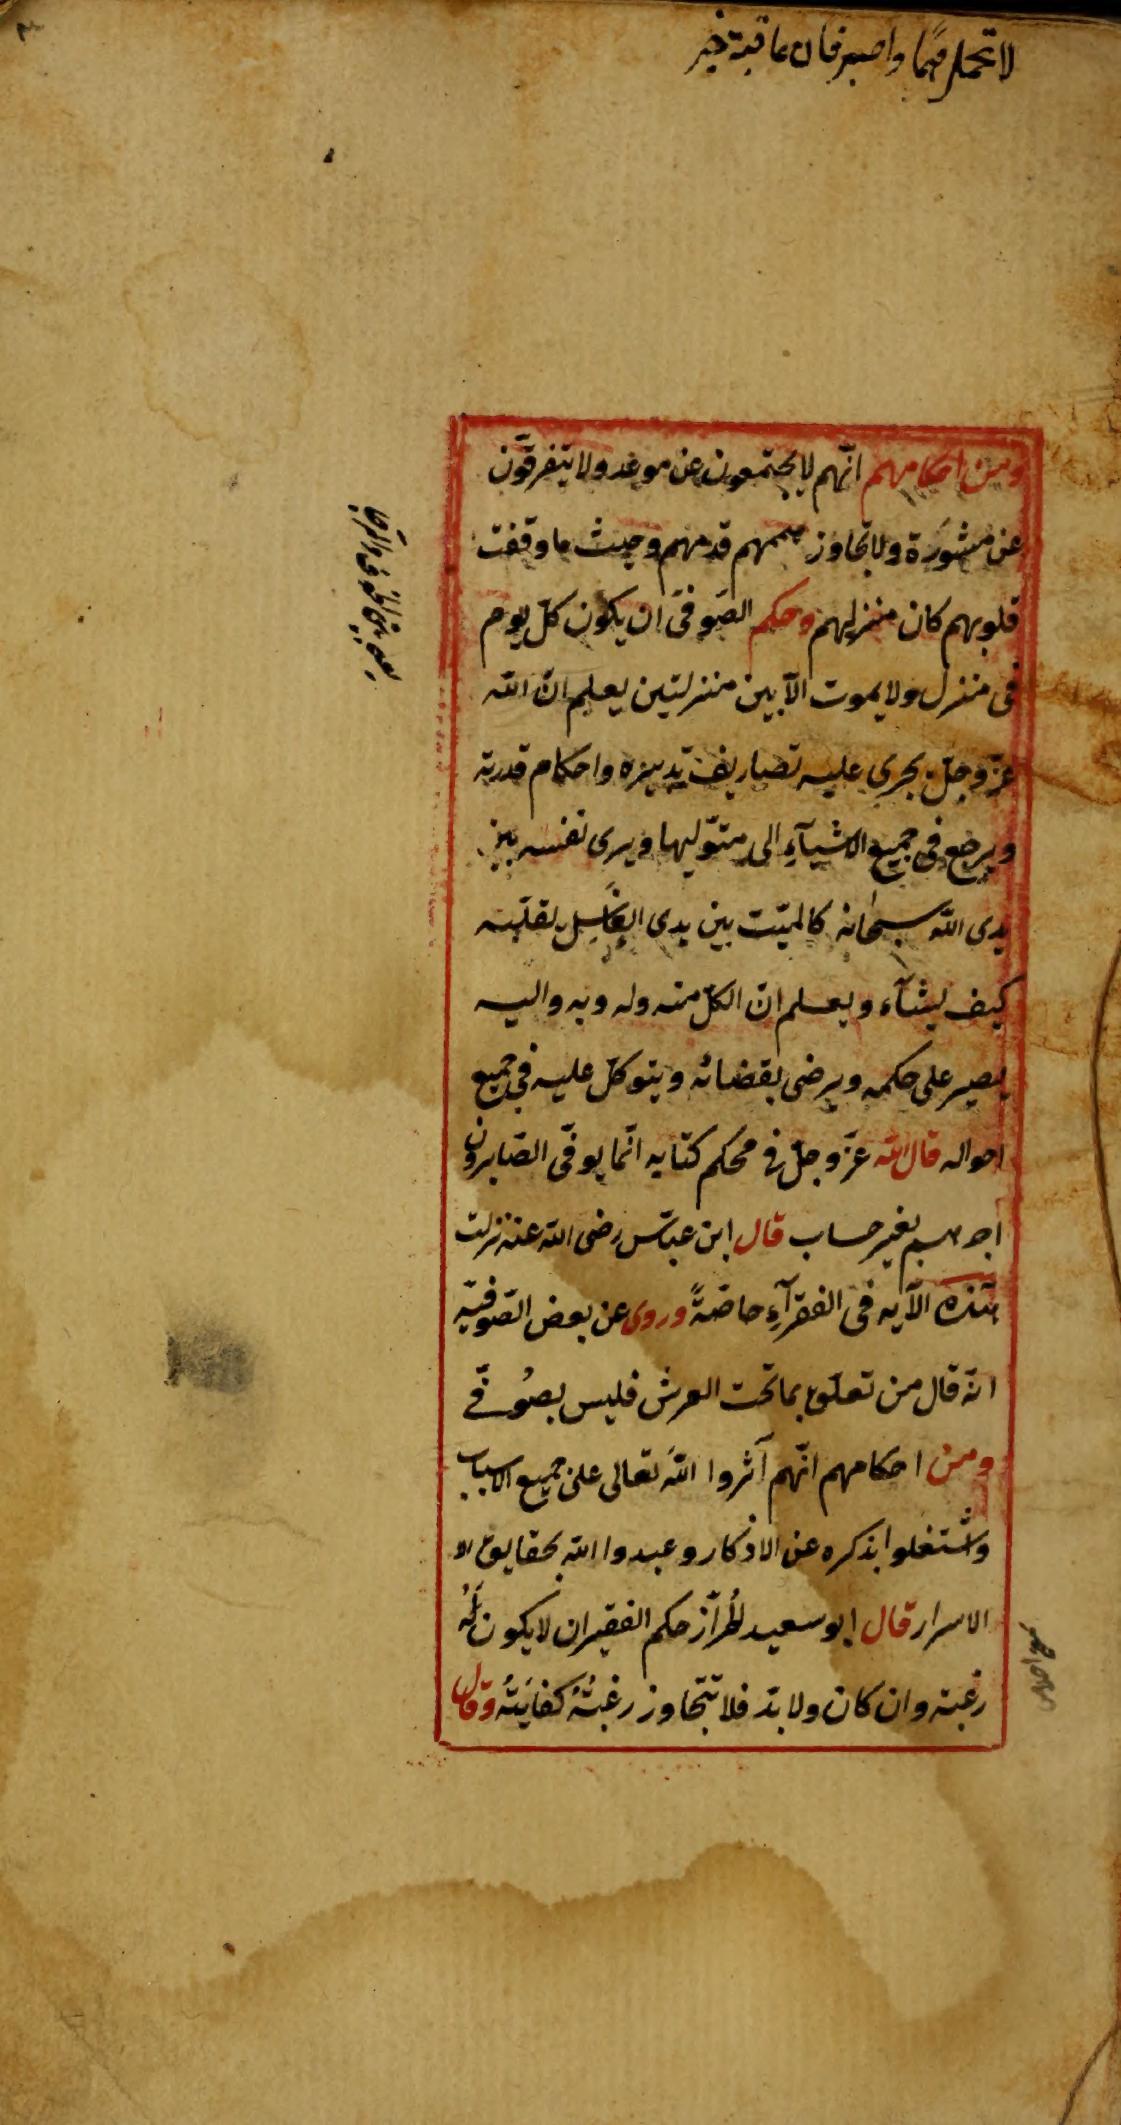 لا تحمل همًا واصبر فان عاقبة خير
ومن احكامهم انّهم لا يجتمعون عن موعد ولا يتفرقّون
عن مشورَة ولا تجاوز هممهم قدمهم وحيث ما وقفت
قلوبهم كان منزلهم وحكم الصّوفى ان يكون كلّ يوم
فى منزل ولا يموت الّا بين منزلتين يعلم انّ اللّه
عزّ وجلّ يجرى عليه تصاريف تدبيره واحكام قدرته
ويرجع فى جميع الاشيآءِ الى متوّليها ويرى نفسه بين
يدى اللّه سبحانه كالميّت بين يدى الغاسِل يقلّبه
كيف يشآء ويعلم انّ الكلّ منه وله وبه واليه
يصبر على حكمه ويرضى بقضائه ويتوكّل عليه فى جميع
احواله قال اللّه عزّ وجلّ فى محكم كتابه انّما يوفّى الصّابرون
اجرهم بغير حساب قال ابن عبّاس رضى اللّه عنه نزلت
هذه الآيه فى الفقرآءِ خاصّةً وروى عن بعض الصّوفيّه
انّه قال من تعلّق بما تحت العرش فليس بصُوفّى
ومن احكامهم انّهم آثروا اللّه تعالى على جميع الاسباب
وشتغلوا بذكره عن الاذكار وعبدوا اللّه بحقايق
الاسرار قال ابو سعيد الخرّاز حكم الفقير ان لا يكون لَهُ
رغبة وان كان ولا بدّ فلا تتجاوز رغبتُهُ كفايَتهُ وقال